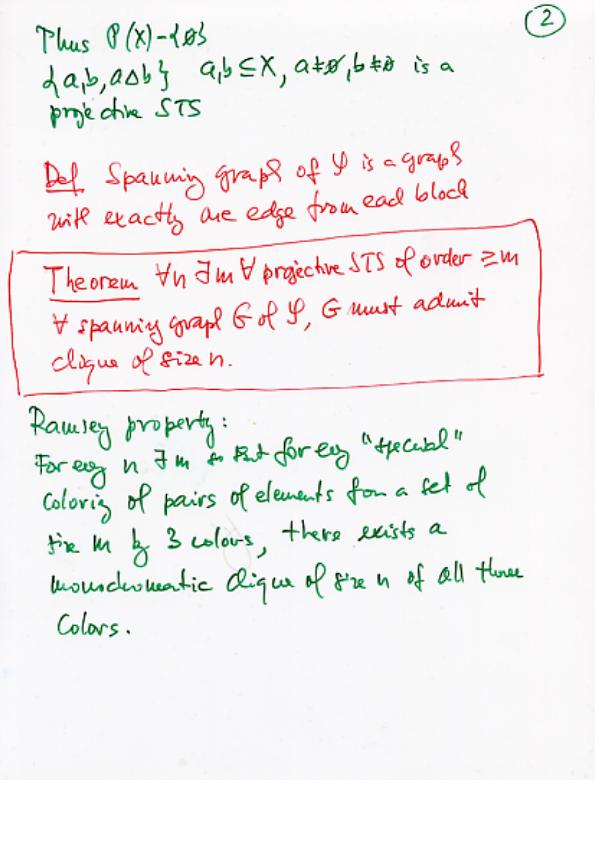 2
Thus P(X)-{ø}
{a,b,a△b} a,b⊆X, a≠ø, b≠ø is a
projective STS
Def Spanning graph of φ is a graph
with exactly one edge from each block
Theorem ∀n ∃m ∀ projective STS of order ≥m
∀ spanning graph G of φ, G must admit
clique of size n.
Ramsey property:
For every n ∃ m so that for every "special"
Coloring of pairs of elements from a set of
size m by 3 colours, there exists a
monochromatic clique of size n of all three
Colors.